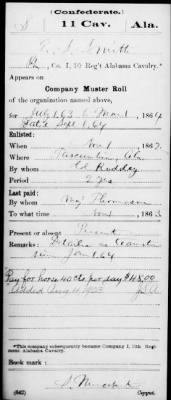 (Confederate.)
S 11 Cav. Ala.
Smith
Pv, Co. I, 10 Reg't Alabama Cavalry.*
Appears on
Company Muster Roll
of the organization named above,
for July 1 63 to Mar 1, 1864
Sept 1, 64
Enlisted:
When Nov 1, 1862
Where Tuscumbia, Ala
By whom Roddey
Period 2 yrs
Last paid:
By whom Maj Thomason
To what time Nov 1, 1863
Present or absent Present
Remarks: Detailed as
since Jan 1 64
Pay for horse 40 cts per day $48.00
*This company subsequently became Company I, 11th Regiment Alabama Cavalry.
Book mark:
(642) Copyist.